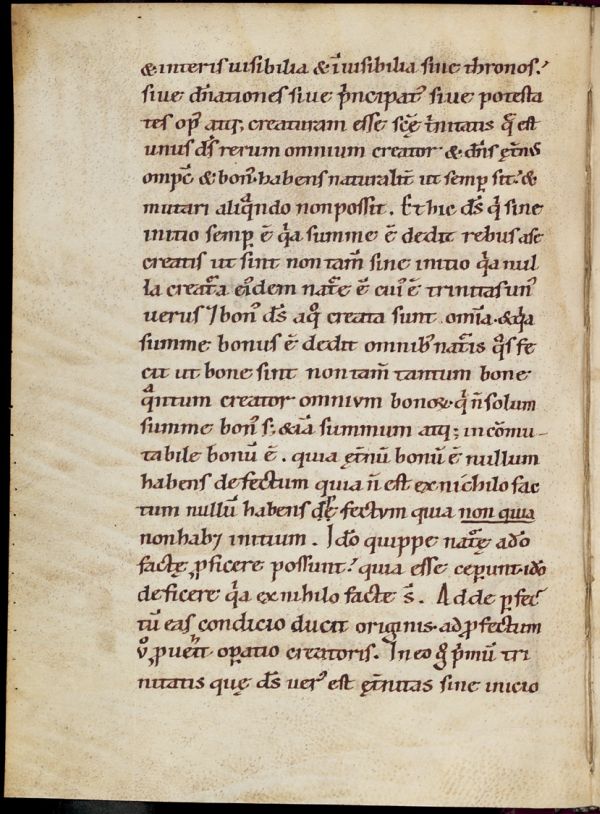 & interis uisibilia & īuisibilia siue thronos.
siue dn̄ationes siue p̄ncipat᷒ siue potesta
tes op᷒ atq; creaturam esse scę̄ t̄nitatis q̄ est
unus ds̄ rerum omnium creator & dn̄s ęt̄n᷒
omp̄c & bon᷒. habens naturalit̄ ut semp̲ sit. &
mutari aliqͣndo non possit. Et hic ds̄ qͥ sine
initio semp̲ ē qͥa summe ē dedit rebus a se
creatis ut sint non tam̄ sine initio qͥa nul
la creat̄a eiͥdem nat̄e ē cui᷒ ē trinitas un᷒
uerus / bon᷒ ds̄ a qͦ creata sunt om̄ia. & qͥa
summe bonus ē dedit omnib᷒ nat̄is qͦs fe
cit ut bone sint non tam̄ tantum bone
qͣntum creator omnium bonoꝝ. qͥ n̄ solum
summe bon᷒ s; & iā summum atq; in cōmu-
tabile bonū ē. quia ęt̄nū bonū ē nullum
habens defectum quia n̄ est ex nichilo fac
tum nullū habens dę fectum quia non quia
non hab& initium. Ido quippe nat̄ę a do
factę ꝓficere possunt. quia esse ceperunt. ido
deficere qͥa ex nihilo facte s̄. Ad de p̲fec
tū eas condicio ducit originis. ad ꝓfectum
uͦ ꝓuehit op̲atio creatoris. In eo gͦ p̄mū tri
nitatis quę ds̄ uer᷒ est ęt̄nitas sine inicio